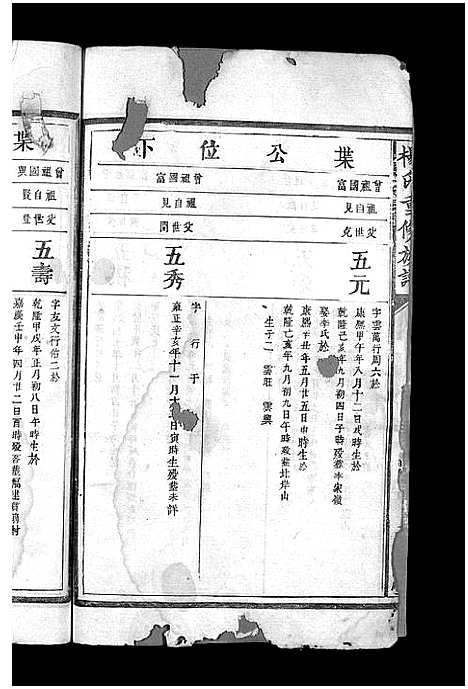 楊氏重修族譜
葉公位下
曾祖國富
祖自見
父世克
五元
字雲萬行周六於
康熙甲午年八月十二日戌時生於
乾隆己亥年九月初四日子時歿葬冰家嶺
娶李氏於
康熙辛丑年五月廿五日申時生於
乾隆己亥年九月初九日午時歿葬社岸山
生子二 雲莊 雲興
曾祖國富
祖自見
父世開
五秀
字 行 于
雍正辛亥年十一月十 日寅時生歿葬未詳
葉
曾祖國興
祖自賢
父世
五壽
字友文行佑二於
乾隆甲戌年正月初八日午時生於
嘉慶壬申年四月廿二日酉時歿 葬福建 村